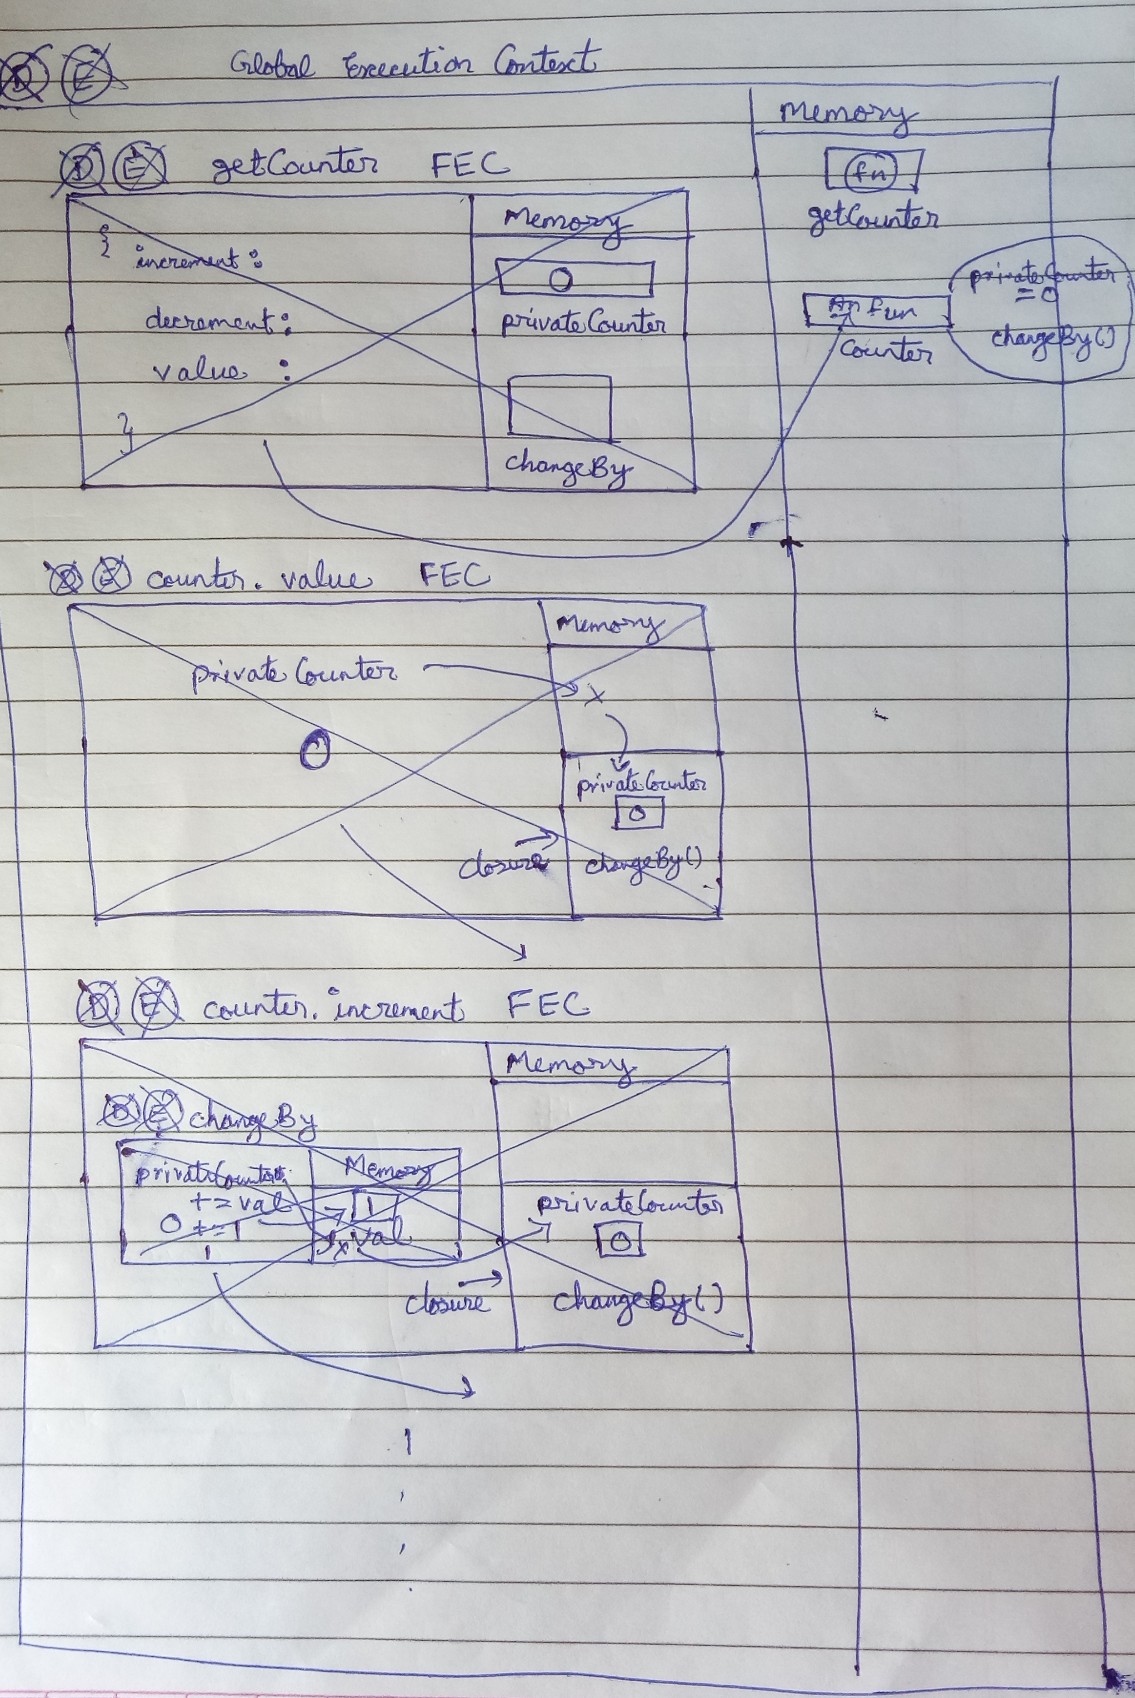 D E Global Execution Context
Memory
fn
getCounter
An fun
Counter
privateCounter
= 0
changeBy()
D E getCounter FEC
Memory
{ increment :
0
privateCounter
decrement :
value :
}
changeBy
D E counter. value FEC
Memory
privateCounter
x
0
privateCounter
0
closure
changeBy()
D E counter. increment FEC
Memory
D E changeBy
privateCounter
+= val
0 += 1
1
Memory
1
val
x
privateCounter
0
closure
changeBy()
1
,
,
.